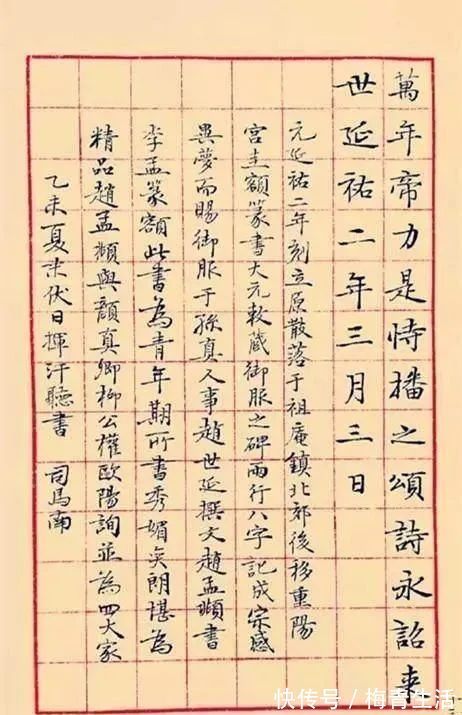 萬年帝力是恃播之頌詩永詔來
世延祐二年三月三日
元延祐二年刻立原散落于祖庵鎮北郊後移重陽
宮圭額篆書大元敕蔵御服之碑兩行八字記成宗感
異夢而賜御服于孫真人事趙世延撰文趙孟頫書
李孟篆額此書為青年期所書秀媚爽朗堪為
精品趙孟頫與顏真卿柳公權歐陽詢並為四大家
乙未夏末伏日揮汗聽書 司馬南
快传号 / 梅青生活